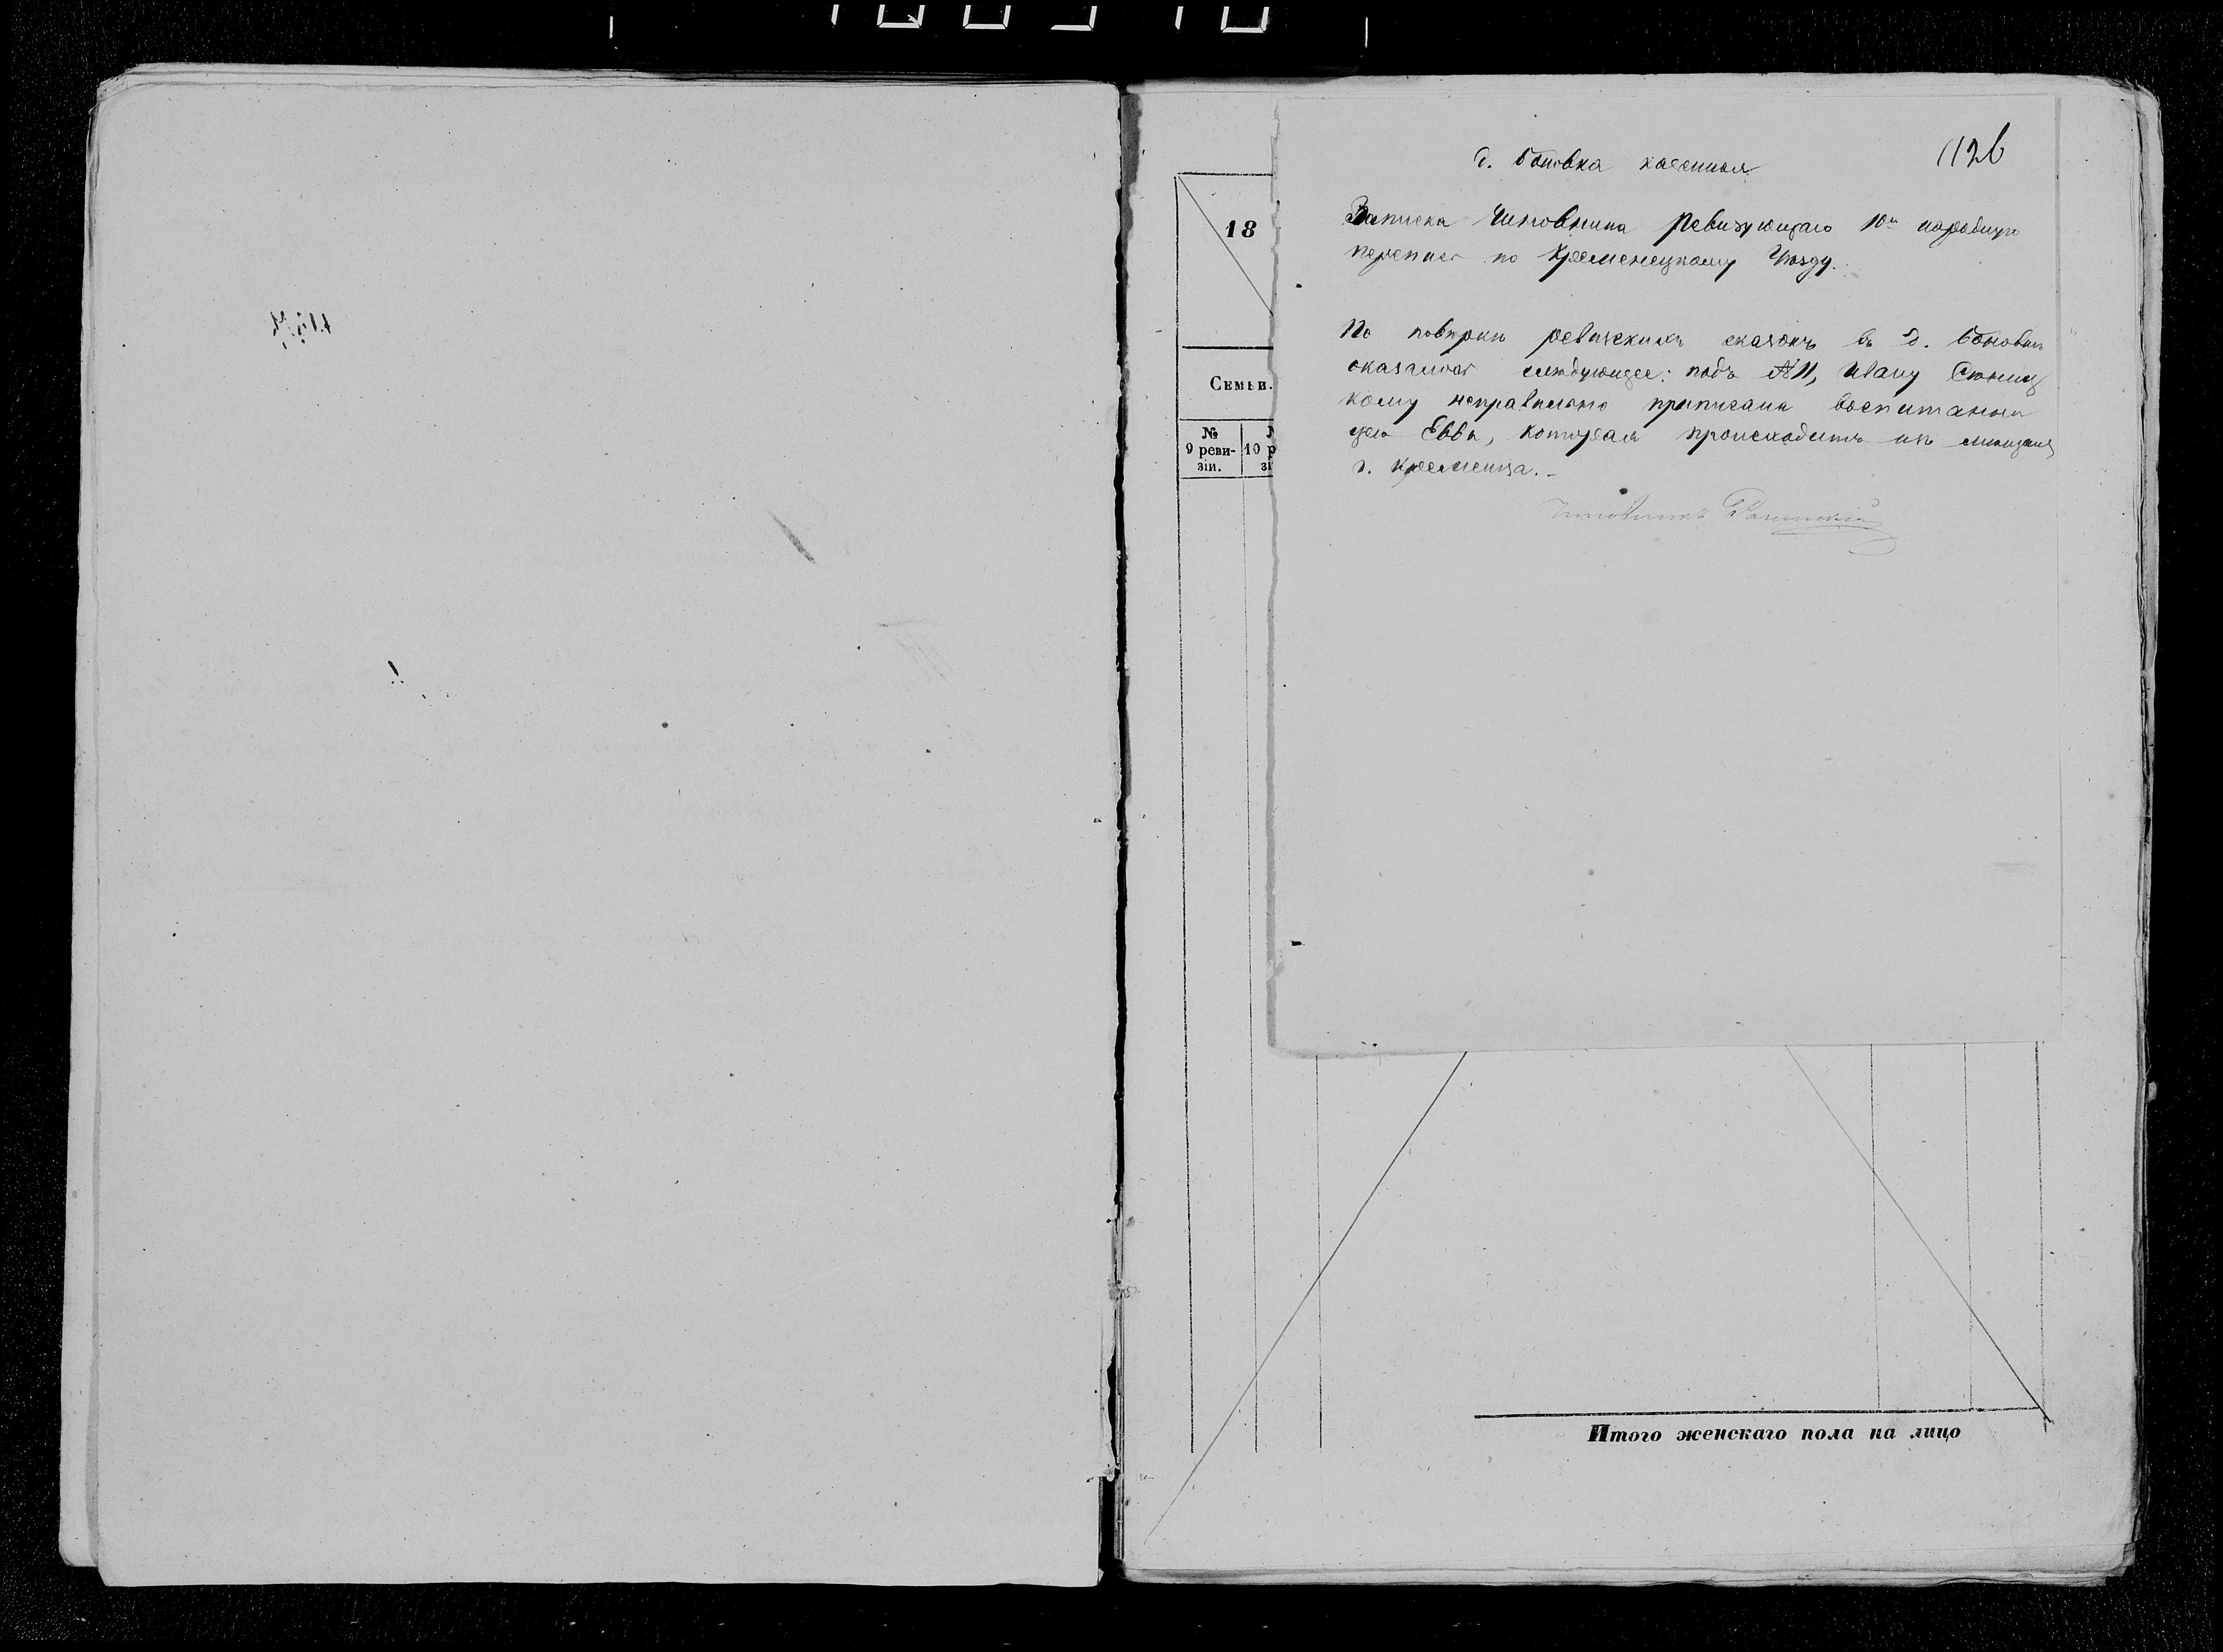 1126
д. Боновка казенная
Записка Чиновника Ревизующаго 10ю народную
перепись по Кременецкому Уѣзду.
По повѣрки ревизскихъ сказокъ въ д. Боновкѣ
оказалось слѣдующее: подъ №11, Ивану
кому неправильно приписана воспитанни
цею Евва, которая происходитъ изъ мѣщанъ
г. Кременца.
Чиновникъ
18
Семьи.
№
9 реви-
зіи.
10 р
зі
Итого женскаго пола на лицо